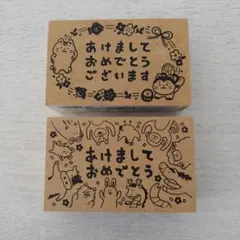 あけまして
おめでとう
ございます
あけまして
おめでとう